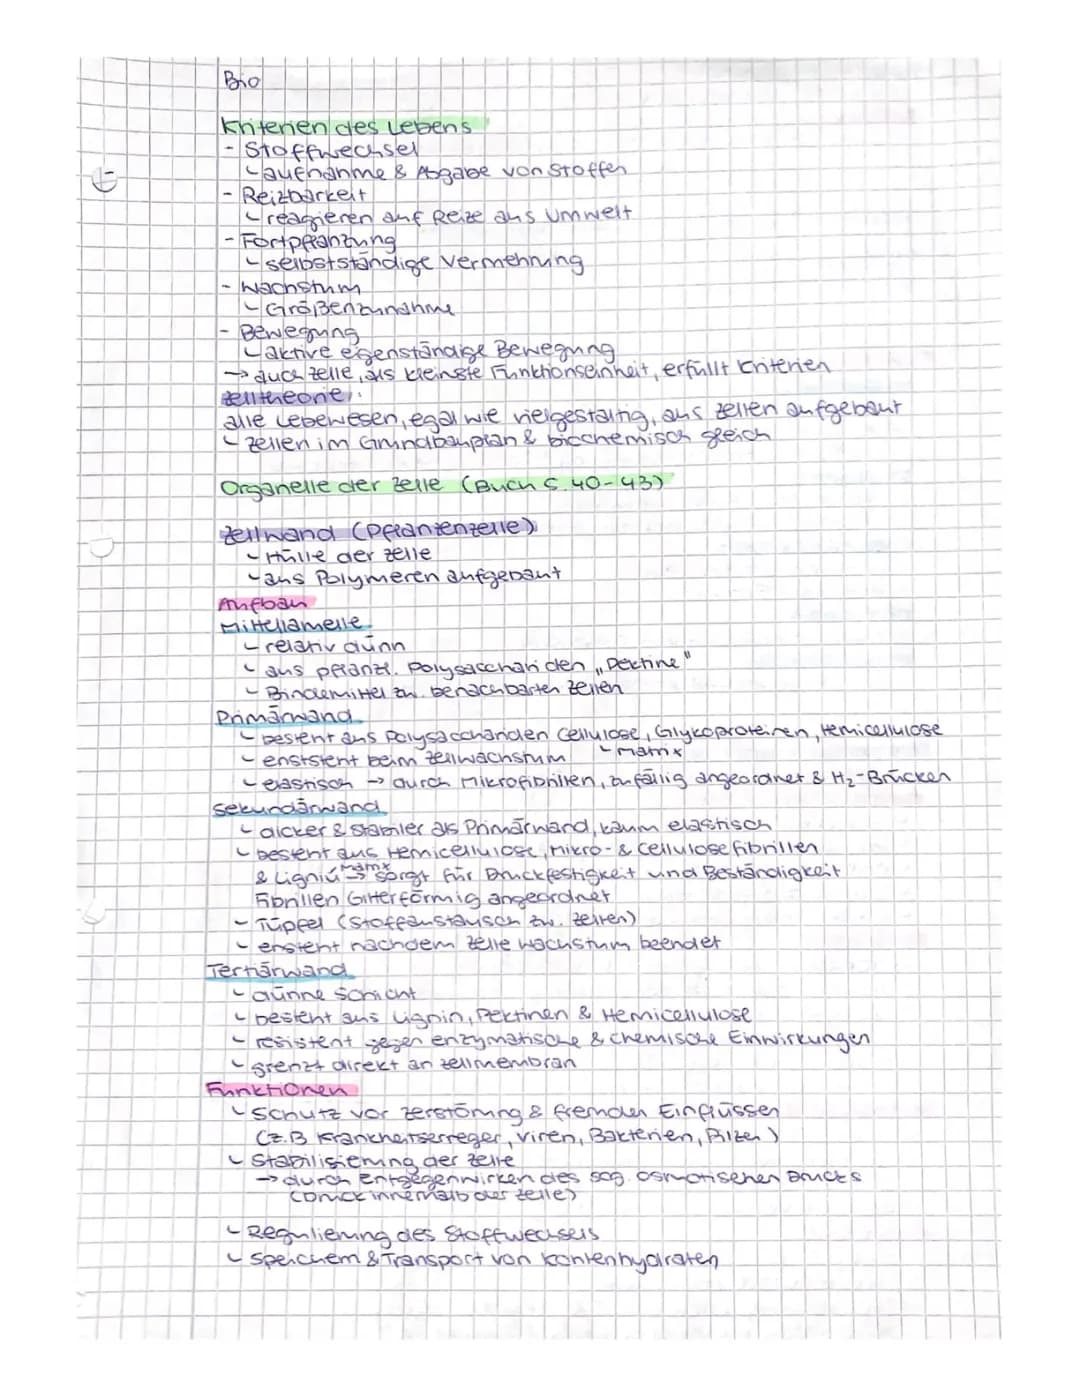 Bio
Kriterien des Lebens
- Stoffwechsel
↳ aufnahme & Abgabe von Stoffen
- Reizbarkeit
↳ reagieren auf Reize aus Umwelt
- Fortpflanzung
↳ selbstständige Vermehrung
- Wachstum
↳ Größenzunahme
- Bewegung
↳ aktive eigenständige Bewegung
→ auch Zelle, als kleinste Funktionseinheit, erfüllt Kriterien
Zelltheorie:
alle Lebewesen, egal wie vielgestaltig, aus Zellen aufgebaut
↳ Zellen im Grundbauplan & biochemisch gleich
Organelle der Zelle (Buch S. 40-43)
Zellwand (Pflanzenzelle)
↳ Hülle der Zelle
↳ aus Polymeren aufgebaut
Aufbau
Mittellamelle
↳ relativ dünn
↳ aus pflanzl. Polysacchariden „Pektine"
↳ Bindemittel zw. benachbarten Zellen
Primärwand
↳ besteht aus Polysacchariden Cellulose, Glykoproteinen, Hemicellulose
↳ enststeht beim Zellwachstum ↳ Matrix
↳ elastisch → durch Mikrofibrillen, zufällig angeordnet & H₂-Brücken
Sekundärwand
↳ dicker & stabiler als Primärwand, kaum elastisch
↳ besteht aus Hemicellulose, Mikro- & Cellulosefibrillen
& Lignin → sorgt für Druckfestigkeit und Beständigkeit
Matrix
Fibrillen Gitterförmig angeordnet
↳ Tüpfel (Stoffaustausch zw. Zellen)
↳ ensteht nachdem Zelle Wachstum beendet
Tertiärwand
↳ dünne Schicht
↳ besteht aus Lignin, Pektinen & Hemicellulose
↳ resistent gegen enzymatische & chemische Einwirkungen
↳ grenzt direkt an Zellmembran
Funktionen
↳ Schutz vor Zerstörung & fremden Einflüssen
(z.B Krankheitserreger, Viren, Bakterien, Pilzen)
↳ Stabilisierung der Zelle
→ durch Entgegenwirken des sog. osmotischen Drucks
(Druck innerhalb der Zelle)
↳ Regulierung des Stoffwechsels
↳ Speichern & Transport von Kohlenhydraten